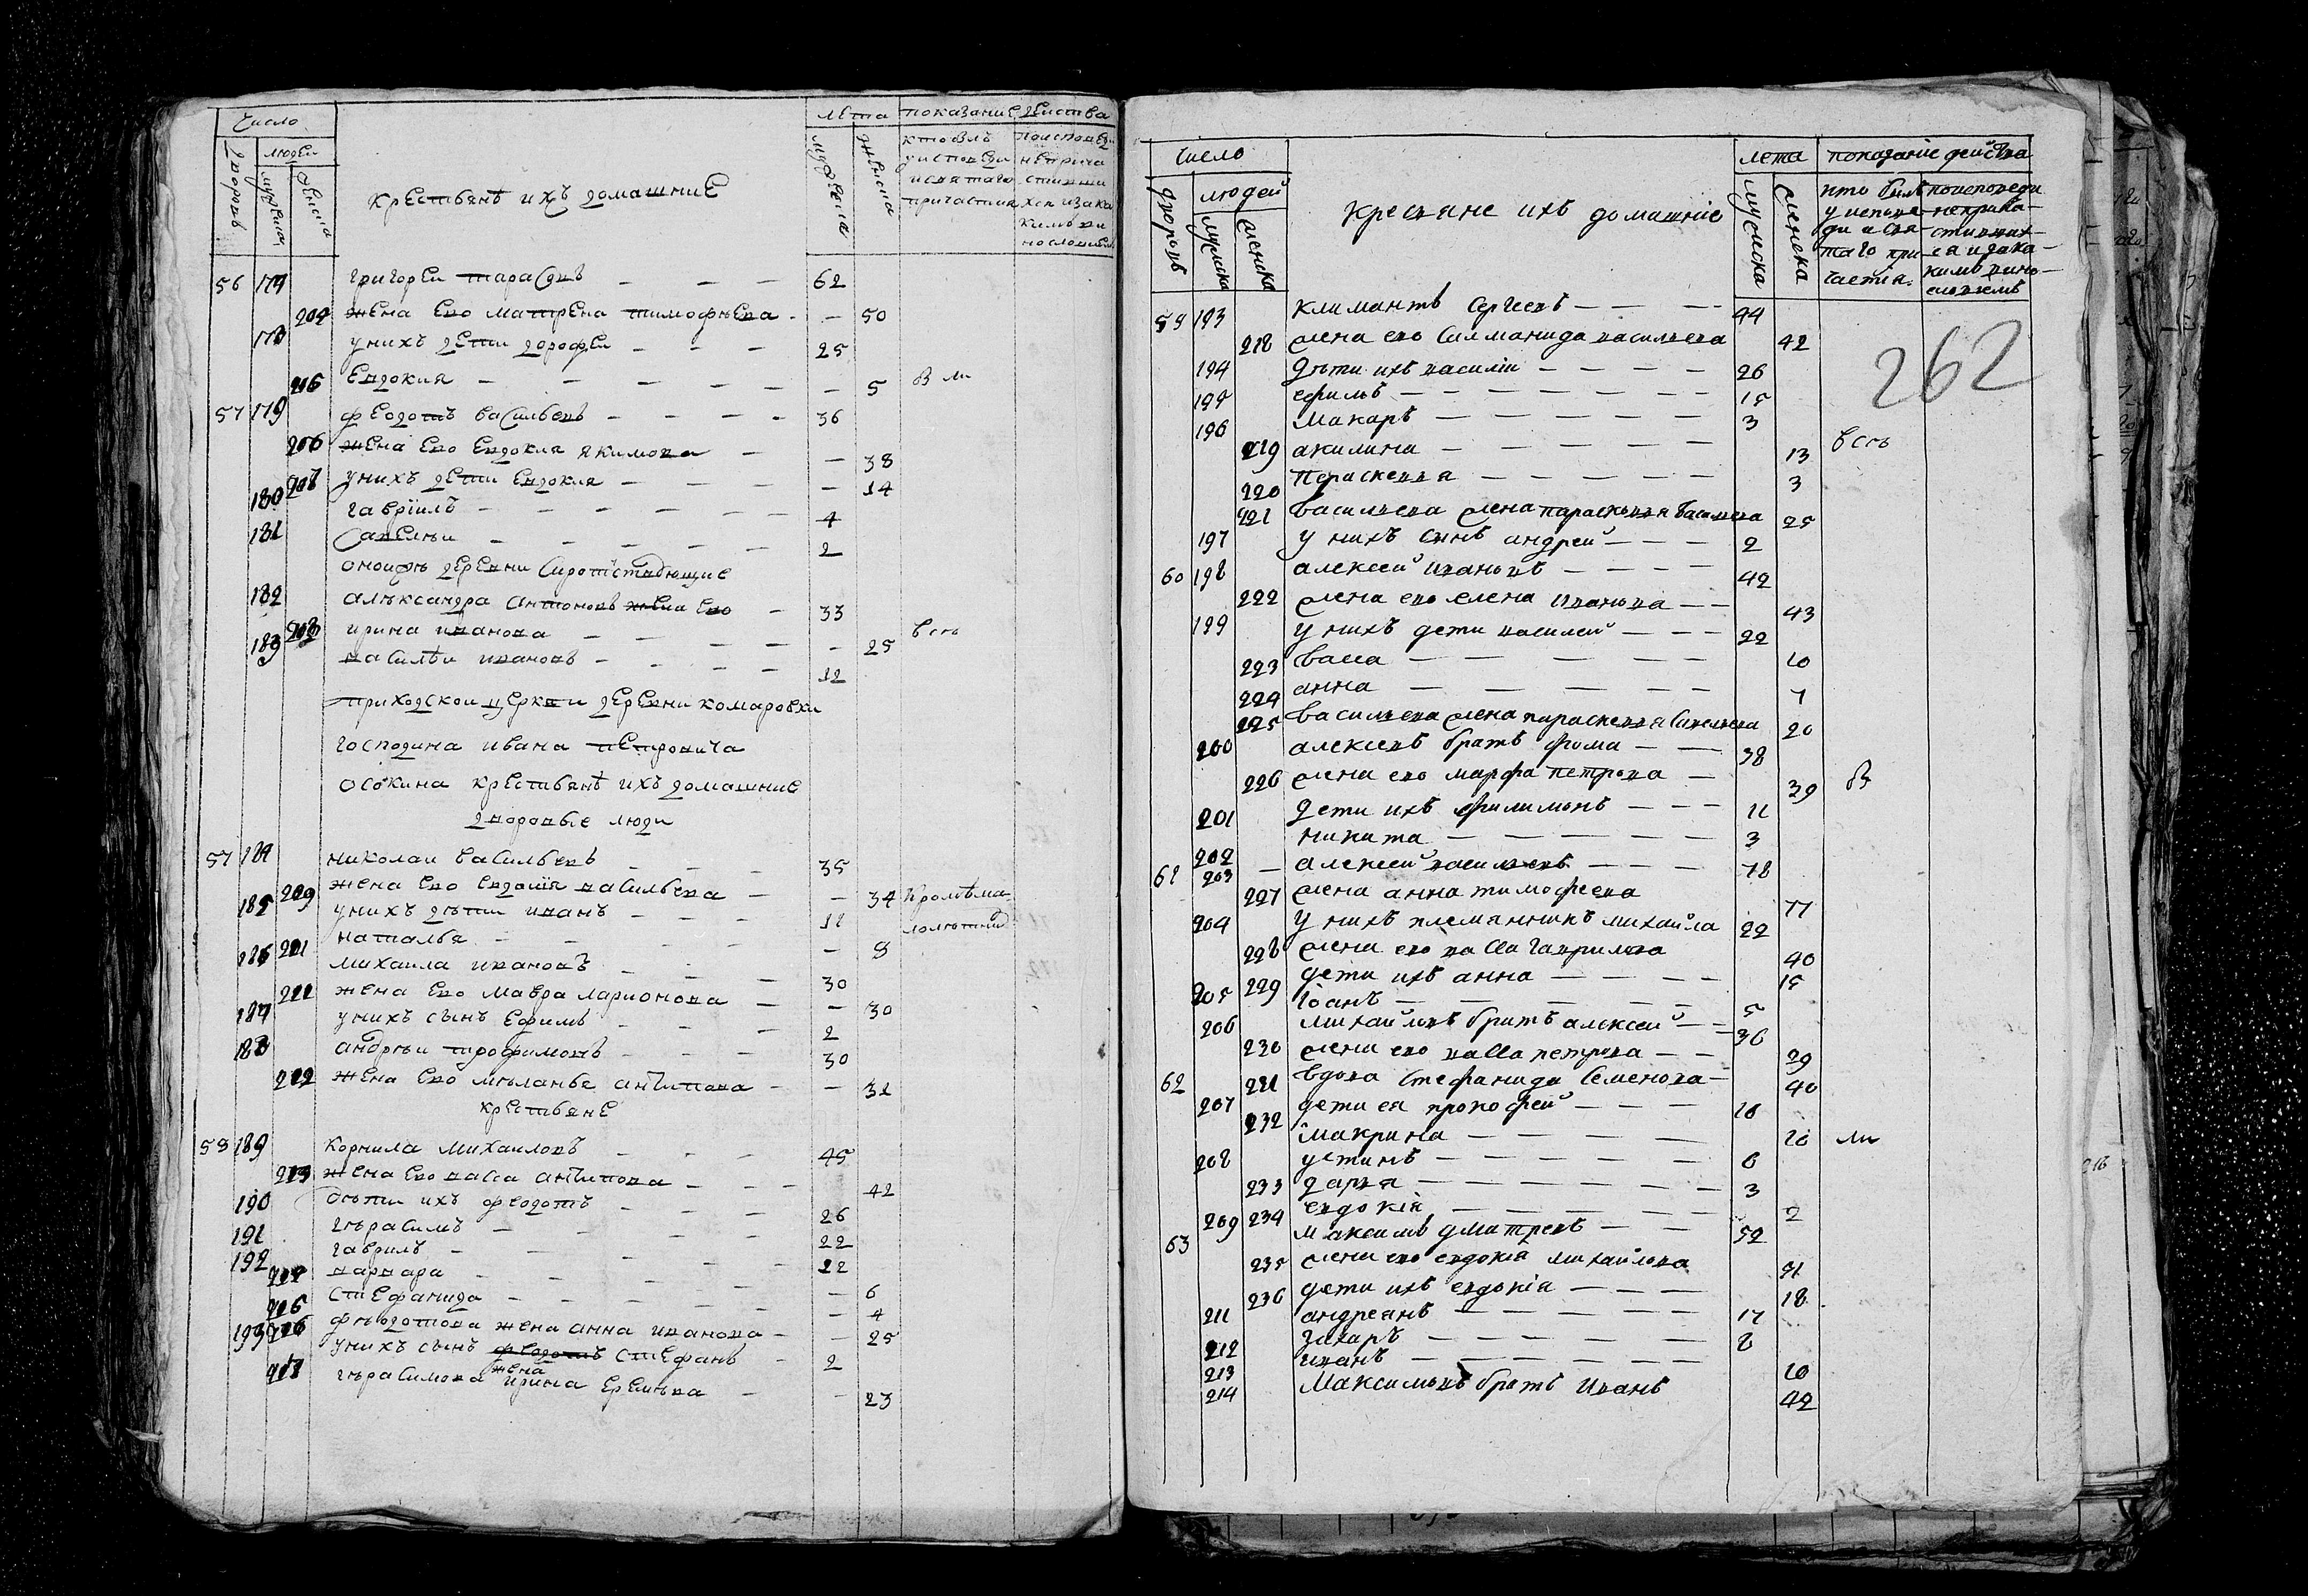 Число
лета показание действа
людеи
дворовъ
мужеска
женска
крестьянѣ ихъ домашние
мужеска
женска
кто былъ
у исповеди
и святаго
причастия
по исповеди
не прича
стивши
хся и за ка
кимъ ви
нословиемъ
56 григореи тарасовъ — — — 62
204 жена ево матрена тимофѣева — — 50
178 у нихъ дети дорофеи — — — 25
205 Евдокия — — — — — — 5 в ли
57 179 федотъ васильевъ — — — — 36
206 жена ево Евдокия якимова — — 38
207 у нихъ дети Евдокия — — — — 14
180 гавріилъ — — — — — — 4
181 савелѣи — — — — — — 2
оноифѣ деревни сиротствующие
182 алѣксандра антоновъ жена ево — 33
208 ирина иванова — — — — — 25 всѣ
183 василѣи ивановъ — — — — 12
приходскои церкви деревни комаровки
господина ивана петровича
осокина крестьянѣ ихъ домашние
дворовые люди
57 184 николаи васильевъ — — — 35
209 жена ево Евдокия васильева — — 34 кромѣ ма-
185 у нихъ дѣти иванъ — — — 11 лолѣтнихъ
наталья — — — — — 8
186 михаила ивановъ — — — 30
211 жена ево мавра ларионова — — 30
187 у нихъ сынъ Ефимъ — — — 2
188 андрѣи трофимовъ — — — 30
212 жена ево мѣланья антипова — — 31
крестьянѣ
58 189 корнила михаиловъ — — — 45
213 жена ево васса антипова — — — 42
190 дѣти ихъ федотъ — — — 26
191 гѣрасимъ — — — — — 22
192 гаврилъ — — — — — 12
варвара — — — — — — 6
215 Стефанида — — — — — — 4
216 фѣдотова жена анна иванова — — 25
193 у нихъ сынъ федотъ Стефанъ — 2
жена
217 гѣрасимова ирина Ерѣмѣева — — 23
число
лета показаніе действа
дворовъ
людей
мужска
женска
крестяне ихъ домашніе
мужеска
женска
кто былъ
у испове-
ди и свя-
таго при-
частия.
по исповеди
неприча-
стивших-
ся и зака-
кимъ вино-
словіемъ
262
59 193 климантъ сергеевъ — — — 44
218 жена ево Саломанида васильева 42
194 дѣти ихъ василіи — — — — 26
195 ефимъ — — — — — — 15
196 Макаръ — — — — — 3
219 акилина — — — — — 13 всѣ
220 Пераскевия — — — — — 3
221 васильева жена параскевия васильева 25
197 у нихъ сынъ андрей — — — 2
60 198 алексей ивановъ — — — — 42
222 жена ево елена иванова — — 43
199 у нихъ дети василей — — — 22
223 васса — — — — — 10
224 анна — — — — — 7
225 васильева жена параскевия Савельева 20
200 алексеевъ братъ фома — — 38
226 жена ево марфа петрова — 39 в
201 дети ихъ филимонъ — — — 11
202 никита — — — — — 3
61 203 — алексей васильевъ — — — 78
227 жена анна тимофеева 77
204 у нихъ племянникъ михайла 22
228 жена ево васса гаврилова 40
229 дети ихъ анна — — — — 15
205 іоанъ — — — — — — 5
206 михайловъ братъ алексей — — 36
230 жена ево васса петрова — — 29
62 231 вдова Стефанида Семенова — 40
207 дети ея прокофей — — — 10
232 макрина — — — — 10 ли
208 устинъ — — — — — 6
233 дарья — — — — — — 3
234 евдокія — — — — — 2
63 209 Максимъ дмитревъ — — 52
235 жена ево евдокія михайлова 51
236 дети ихъ евдокіа — — — 18
211 андреянъ — — — — — 17
212 захаръ — — — — — 8
213 иванъ — — — — — — 10
214 Максимовъ братъ Иванъ 42